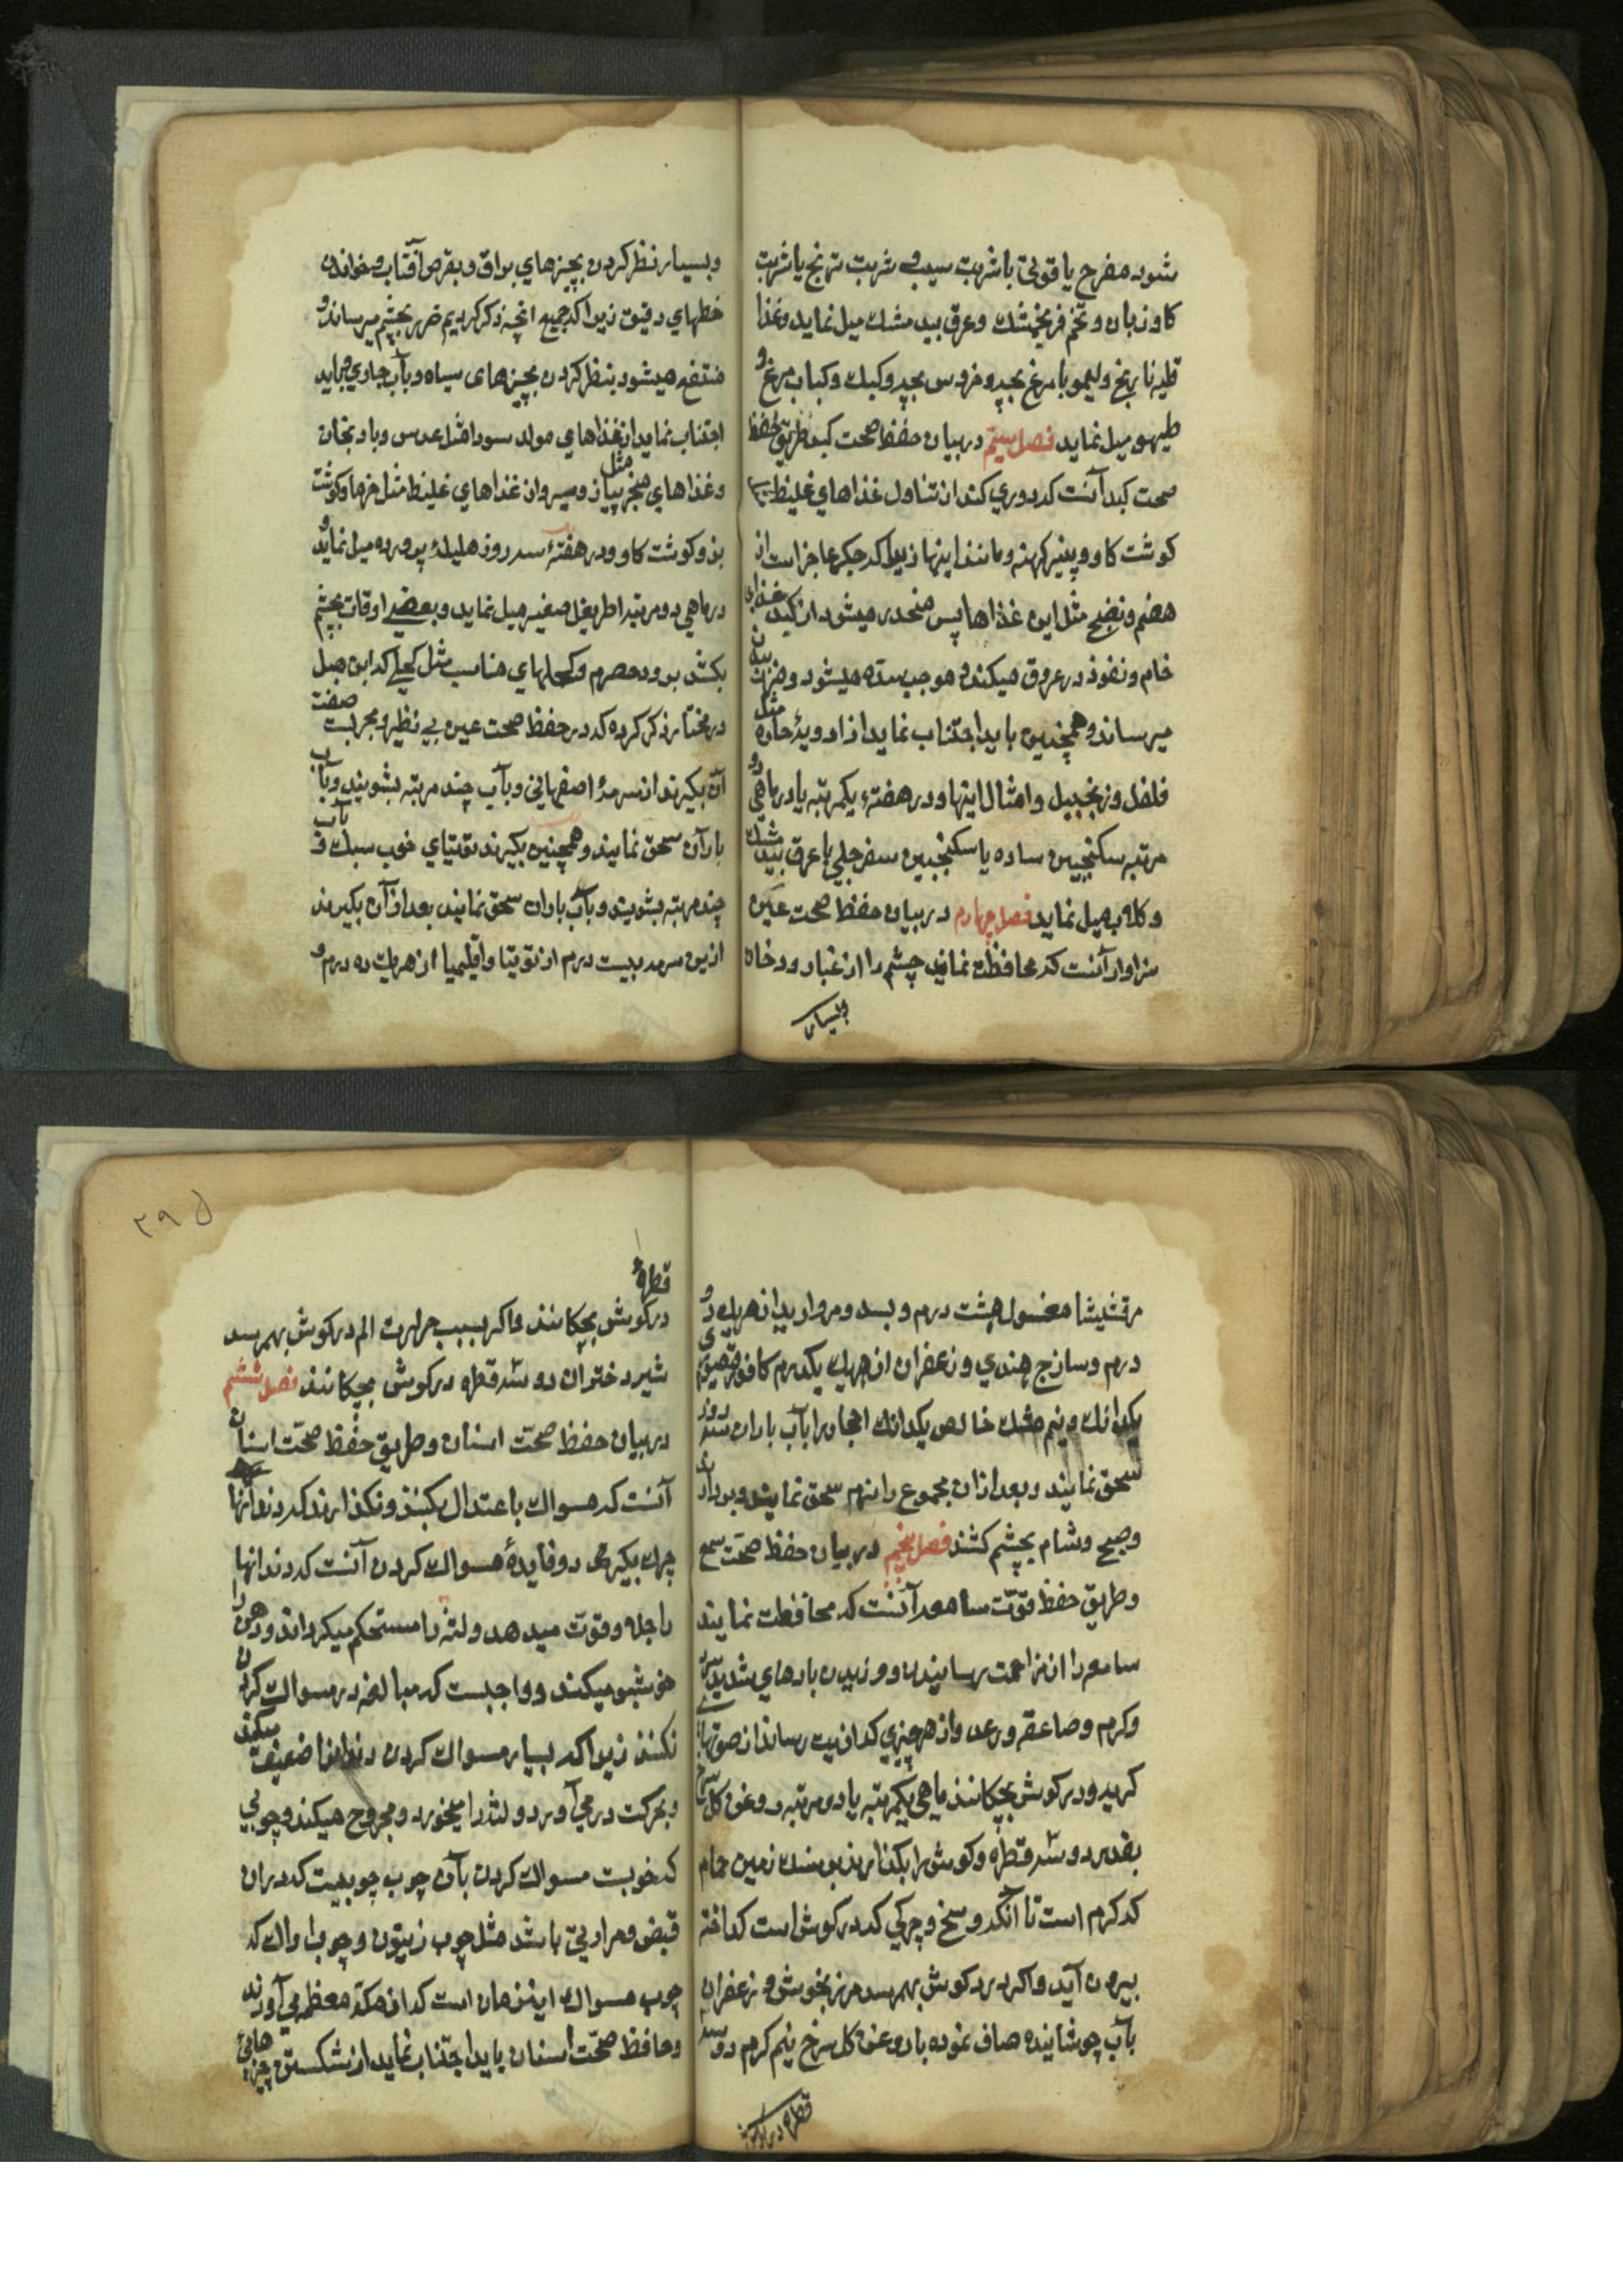 شود مفرح یاقوتی با شربت سیب و شربت ترنج یا شربت
کاوزبان و تخم فرنجمشك وعرق بید مشك میل نماید وغذا
قلیه نارنج ولیمو با مرغ بچه وخروس بچه وکبك وکباب مرغ و
طیهو میل نماید فصل سیم در بیان حفظ صحت کبد طریق حفظ
صحت کبد آنست که دوري کند از تناول غذاهاي غلیظ
کوشت کاو و پنیر کهنه ومانند اینها زیرا که جکر عاجز است از
هضم ونضج مثل این غذاها پس منحدر میشود از کبد غذاي
خام ونفوذ در عروق میکند و موجب سده میشود وضرر
میرساند وهمچنین باید اجتناب نماید از ادویۀ حاره مثل
فلفل وزنجبیل وامثال اینها ودر هفتۀ یکمرتبه یا در ماهی دو
مرتبه سکنجبین ساده یا سکنجبین سفرجلی با عرق بید مشك
و کلاب میل نماید فصل چهارم در بیان حفظ صحت عین
سزاوار آنست که محافظت نمایند چشم را از غبار ودخان
وبسیار
وبسیار نظر کردن بچیزهاي براق وبقرص آفتاب وخواندن
خطهاي دقیق زیرا که جمیع انچه ذکر کردیم ضرر بچشم میرساند و
منتفع میشود بنظر کردن بچیزهای سیاه وبآب جاري وباید
اجتناب نماید از غذاهاي مولد سودا مثل عدس وبادنجان
وغذاهاي مبخر مثل پیاز وسیر واز غذاهاي غلیظ مثل خرما وکوشت
بز وکوشت کاو ودر هفتۀ سه روز هلیلۀ پرورده میل نماید و
در ماهي دو مرتبه اطریفل صغیر میل نماید وبعضی اوقات بچشم
بکشد برود حصرم وکحلهاي مناسب مثل کحلی که ابن هبل
در مختار ذکر کرده که در حفظ صحت عین بي نظیر ومجربست صفت
آن بکیرند از سرمۀ اصفهانی وبآب چند مرتبه بشویند وبآب
باران سحق نمایند وهمچنین بکیرند توتیاي خوب سبك و بآب
چند مرتبه بشویند وبآب باران سحق نمایند بعد از آن بکیرند
ازین سرمه بیست درم از توتیا واقلیمیا از هریك ده درم و
٣٩٥
مرقشیشا مغسول هشت درم وبسد ومروارید از هریك دو
درم وساذج هندي وزعفران از هریك یکدرم کافور قیصوری
یکدانك ونیم مشك خالص یکدانك احجار را بآب باران سه روز
سحق نمایند وبعد از آن مجموع را نرم سحق نمایند وبردارند
وصبح وشام بچشم کشند فصل پنجم در بیان حفظ صحت سمع
وطریق حفظ قوت سامعه آنست که محافظت نمایند
سامعه را از مزاحمت رسانیدن ووزیدن بادهاي شدید سرد
وکرم وصاعقه ورعد واز هر چیزي که اذیت رساند از صوتهای
کریه ودر کوش بچکانند ماهی یکمرتبه یا دو مرتبه روغن کل سرخ
بقدر دو سه قطره وکوش را بکذارند بر سنك زمین حمام
که کرم است تا آنکه وسخ وچرکی که در کوش است کداخته
بیرون آید واکر درد کوش بهمرسد مرزنجوش وزعفران
بآب جوشانیده صاف نموده با روغن کل سرخ نیم کرم دو سه
قطره در کوش
قطرۀ
در کوش بچکانند واکر بسبب حرارت الم در کوش بهمرسد
شیر دختران دو سه قطره در کوش بچکانند فصل ششم
در بیان حفظ صحت اسنان وطریق حفظ صحت اسنان
آنست که مسواك باعتدال بکنند ونکذارند که دندانها
چرك بکیرد و فایدۀ مسواك کردن آنست که دندانها
را جلا وقوت میدهد ولثه را مستحکم میکرداند ودهن را
خوشبو میکند وواجبست که مبالغه در مسواك کردن
نکنند زیرا که بسیار مسواك کردن دندانها ضعیف میکند
وبحرکت در مي آورد ولثه را میخورد ومجروح میکند وچوبي
که خوبست مسواك کردن بآن چوب چوبیست که در آن
قبض ومرارتی باشد مثل چوب زیتون وچوب اراك که
چوب مسواك این زمان است که از مکۀ معظمه می آورند
وحافظ صحت اسنان باید اجتناب نماید از شکستن چیزهائی